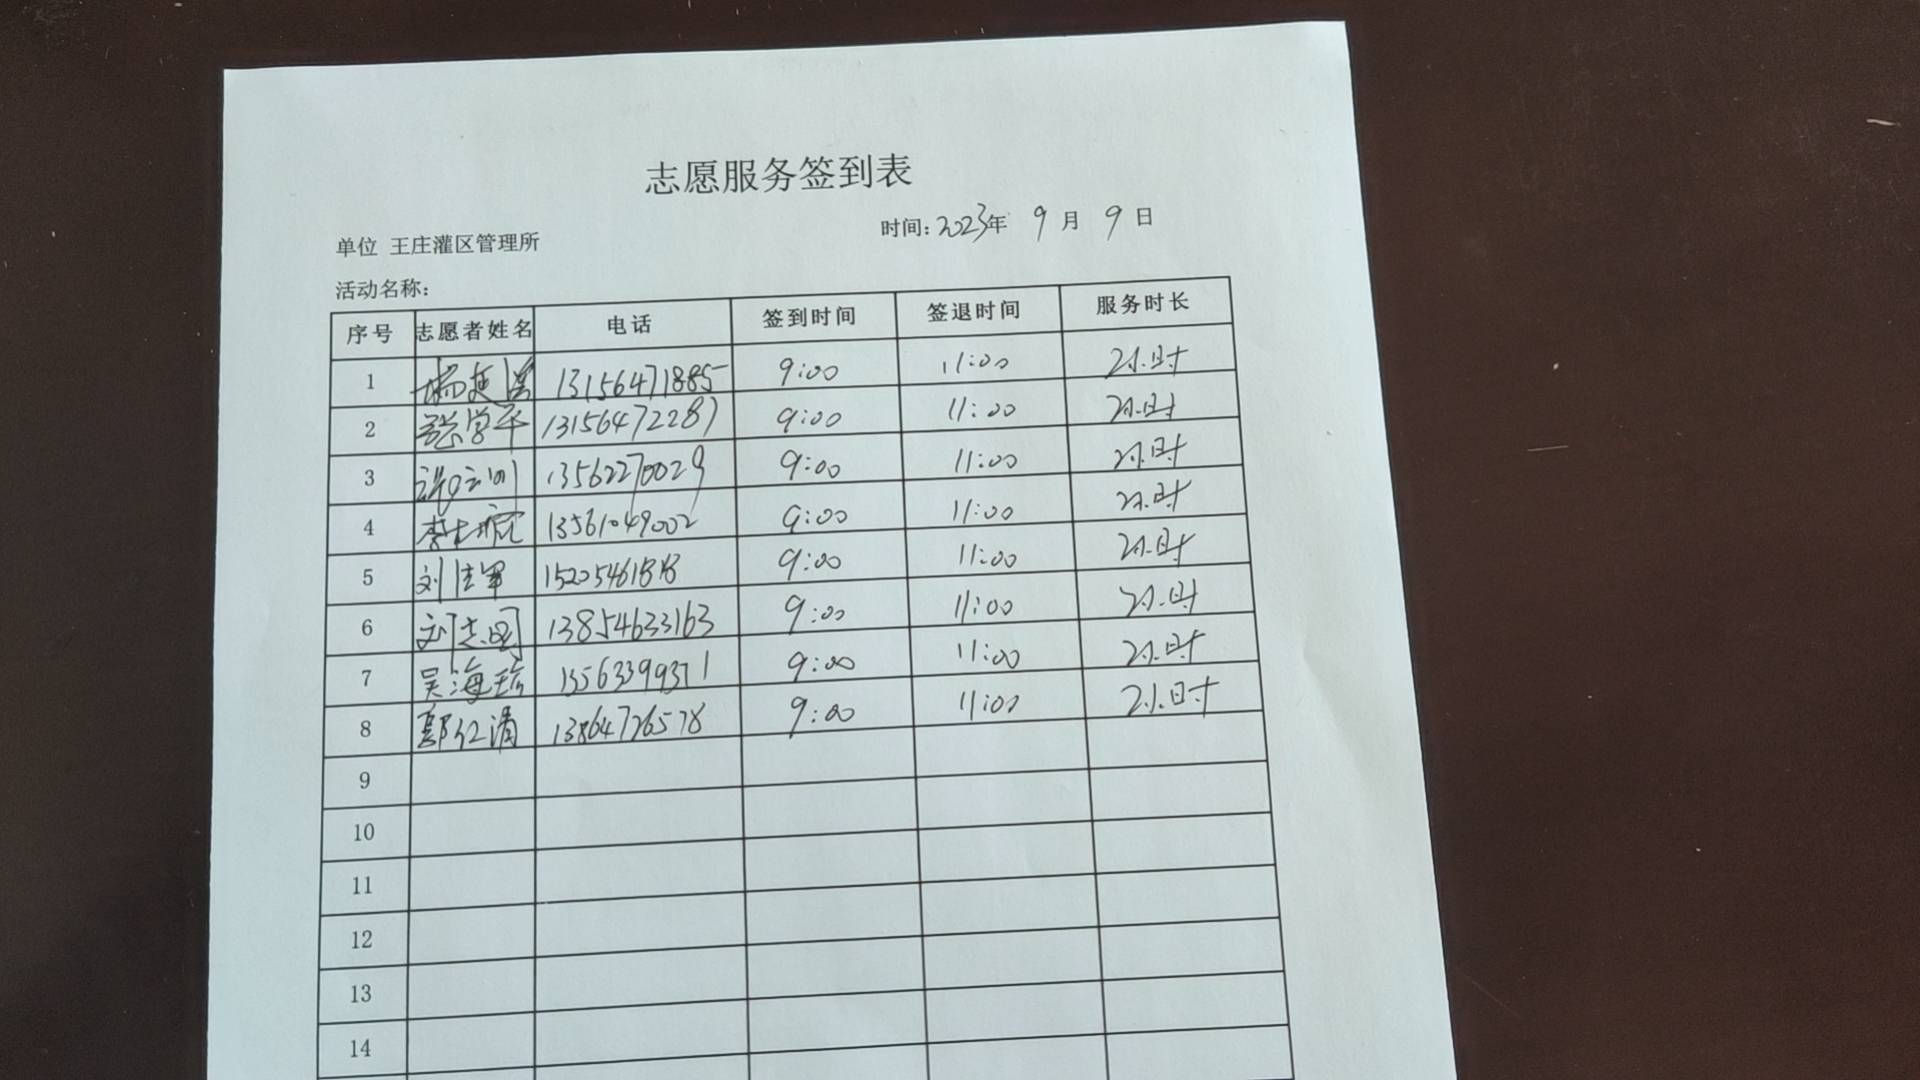 志愿服务签到表
时间:2023年 9 月 9 日
单位 王庄灌区管理所
活动名称:
序号 志愿者姓名 电话 签到时间 签退时间 服务时长
1 13156471885 9:00 11:00 2小时
2 张学平 13156472287 9:00 11:00 2小时
3 13562270029 9:00 11:00 2小时
4 13561049002 9:00 11:00 2小时
5 刘佳军 15205461818 9:00 11:00 2小时
6 刘志国 13854633163 9:00 11:00 2小时
7 吴海 15563399371 9:00 11:00 2小时
8 郭仁清 13864726578 9:00 11:00 2小时
9
10
11
12
13
14